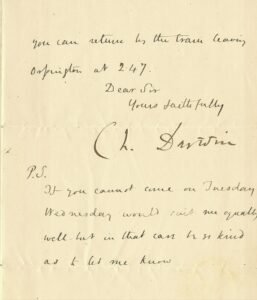 you can return by the train leaving
Orpington at 2 47.
Dear Sir
Yours faithfully
Ch. Darwin
P.S.
If you cannot come on Tuesday
Wednesday would suit me equally
well but in that case be so kind
as to let me know